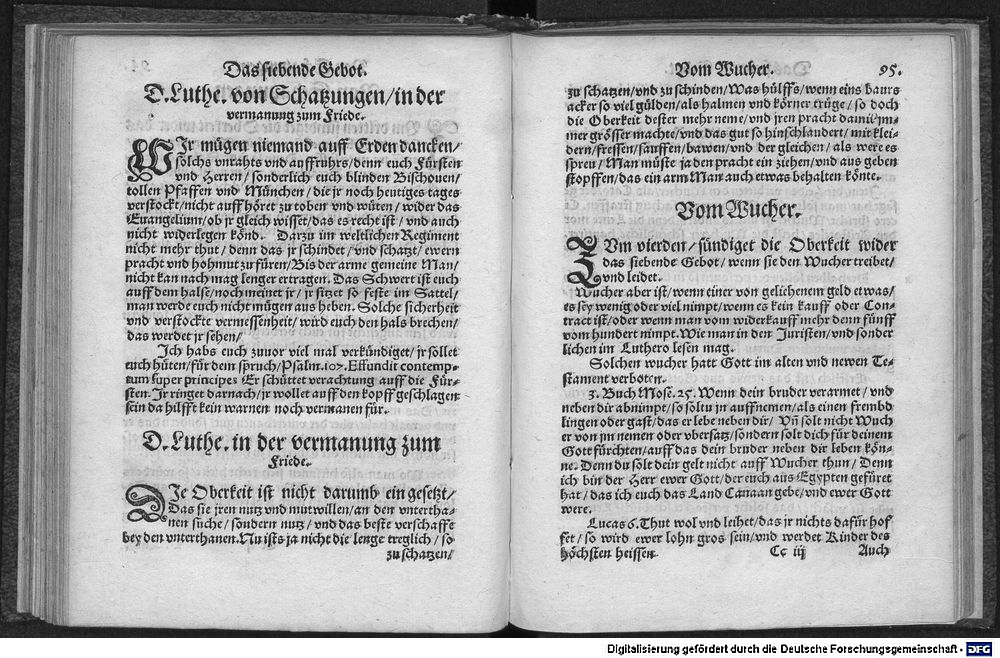 Das siebende Gebot.
D. Luthe. von Schatzungen/in der
vermanung zum Friede.
WIr mügen niemand auff Erden dancken/
solchs vnrahts vnd auffruhrs/denn euch Fürsten
vnd Herren/sonderlich euch blinden Bischouen/
tollen Pfaffen vnd München/die jr noch heutiges tages
verstockt/nicht auffhöret zu toben vnd wüten/wider das
Euangelium/ob jr gleich wisset/das es recht ist/vnd auch
nicht widerlegen könd. Darzu im weltlichen Regiment
nicht mehr thut/denn das jr schindet/vnd schatzt/ewern
pracht vnd hohmut zu füren/Bis der arme gemeine Man/
nicht kan nach mag lenger ertragen. Das Schwert ist euch
auff dem halse/noch meinet jr/jr sitzet so feste im Sattel/
man werde euch nicht mügen aus heben. Solche sicherheit
vnd verstockte vermessenheit/wird euch den hals brechen/
das werdet jr sehen/
Ich habs euch zuuor viel mal verkündiget/jr söllet
euch hüten/für dem spruch/Psalm. 107. Effundit contemp-
tum super principes Er schüttet verachtung auff die Für-
sten. Jr ringet darnach/jr wollet auff den kopff geschlagen
sein da hilfft kein warnen noch vermanen für.
D. Luthe. in der vermanung zum
Friede.
DIe Oberkeit ist nicht darumb ein gesetzt/
Das sie jren nutz vnd mutwillen/an den vntertha-
nen suche/sondern nutz/vnd das beste verschaffe
bey den vnterthanen. Nu ists ja nicht die lenge treglich/so
zu schatzen/
Vom Wucher. 95.
zu schatzen/vnd zu schinden/Was hülffs/wenn eins baurs
acker so viel gülden/als halmen vnd körner trüge/so doch
die Oberkeit dester mehr neme/vnd jren pracht damit jm-
mer grösser machte/vnd das gut so hinschlaudert/mit klei-
dern/fressen/sauffen/bawen/vnd der gleichen/als were es
spreu/Man müste ja den pracht ein ziehen/vnd aus geben
stopffen/das ein arm Man auch etwas behalten könte.
Vom Wucher.
ZVm vierden/sündiget die Oberkeit wider
das siebende Gebot/wenn sie den Wucher treibet/
vnd leidet.
Wucher aber ist/wenn einer von gelichenem geld etwas/
es sey wenig oder viel nimpt/wenn es kein kauff oder Con-
tract ist/oder wenn man vom widerkauff mehr denn fünff
vom hundert nimpt. Wie man in den Juristen/vnd sonder
lichen im Luthero lesen mag.
Solchen wucher hatt Gott im alten vnd newen Te-
stament verboten.
3. Buch Mose. 25. Wenn dein bruder verarmet/vnd
neben dir abnimpt/so soltu jn auffnemen/als einen frembd
lingen oder gast/das er lebe neben dir/Vñ solt nicht Wuch
er von jm nemen oder vbersatz/sondern solt dich für deinem
Gott fürchten/auff das dein bruder neben dir leben kön-
ne. Denn du solt dein gelt nicht auff Wucher thun/Denn
ich bin der Herr ewer Gott/der euch aus Egypten gefüret
hat/das ich euch das Land Canaan gebe/vnd ewer Gott
were.
Lucas 6. Thut wol vnd leihet/das jr nichts dafür hof
fet/so wird ewer lohn gros sein/vnd werdet Kinder des
höchsten heissen. Cc iij Auch
Digitalisierung gefördert durch die Deutsche Forschungsgemeinschaft - DFG